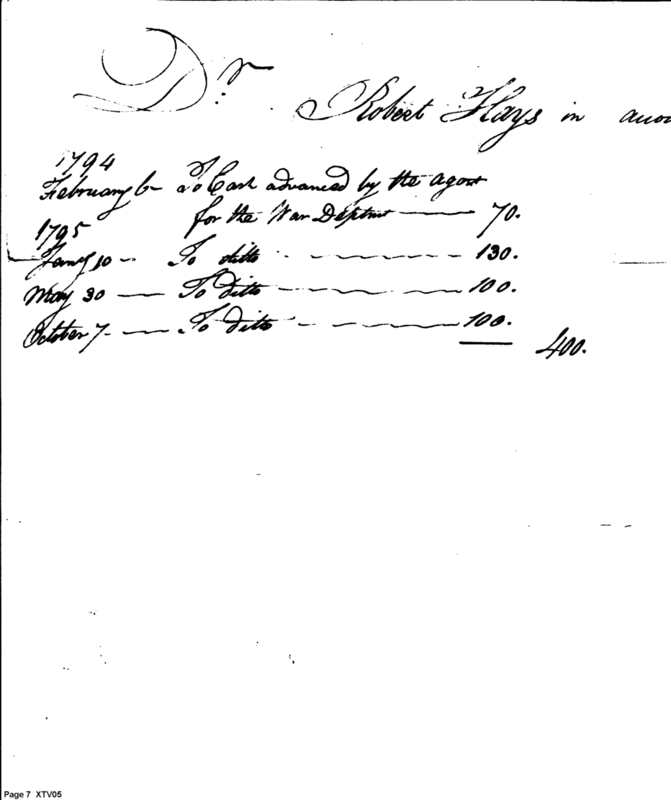 Dr
Robert Hays in accou
1794
February 6 - To Cash advanced by the agent
for the War Deptmt — 70.
1795
Jany 10 - - To ditto - - - - - 130.
May 30 — To ditto - - - - - 100.
October 7 - — To ditto - - - - - 100.
400.
Page 7 XTV05